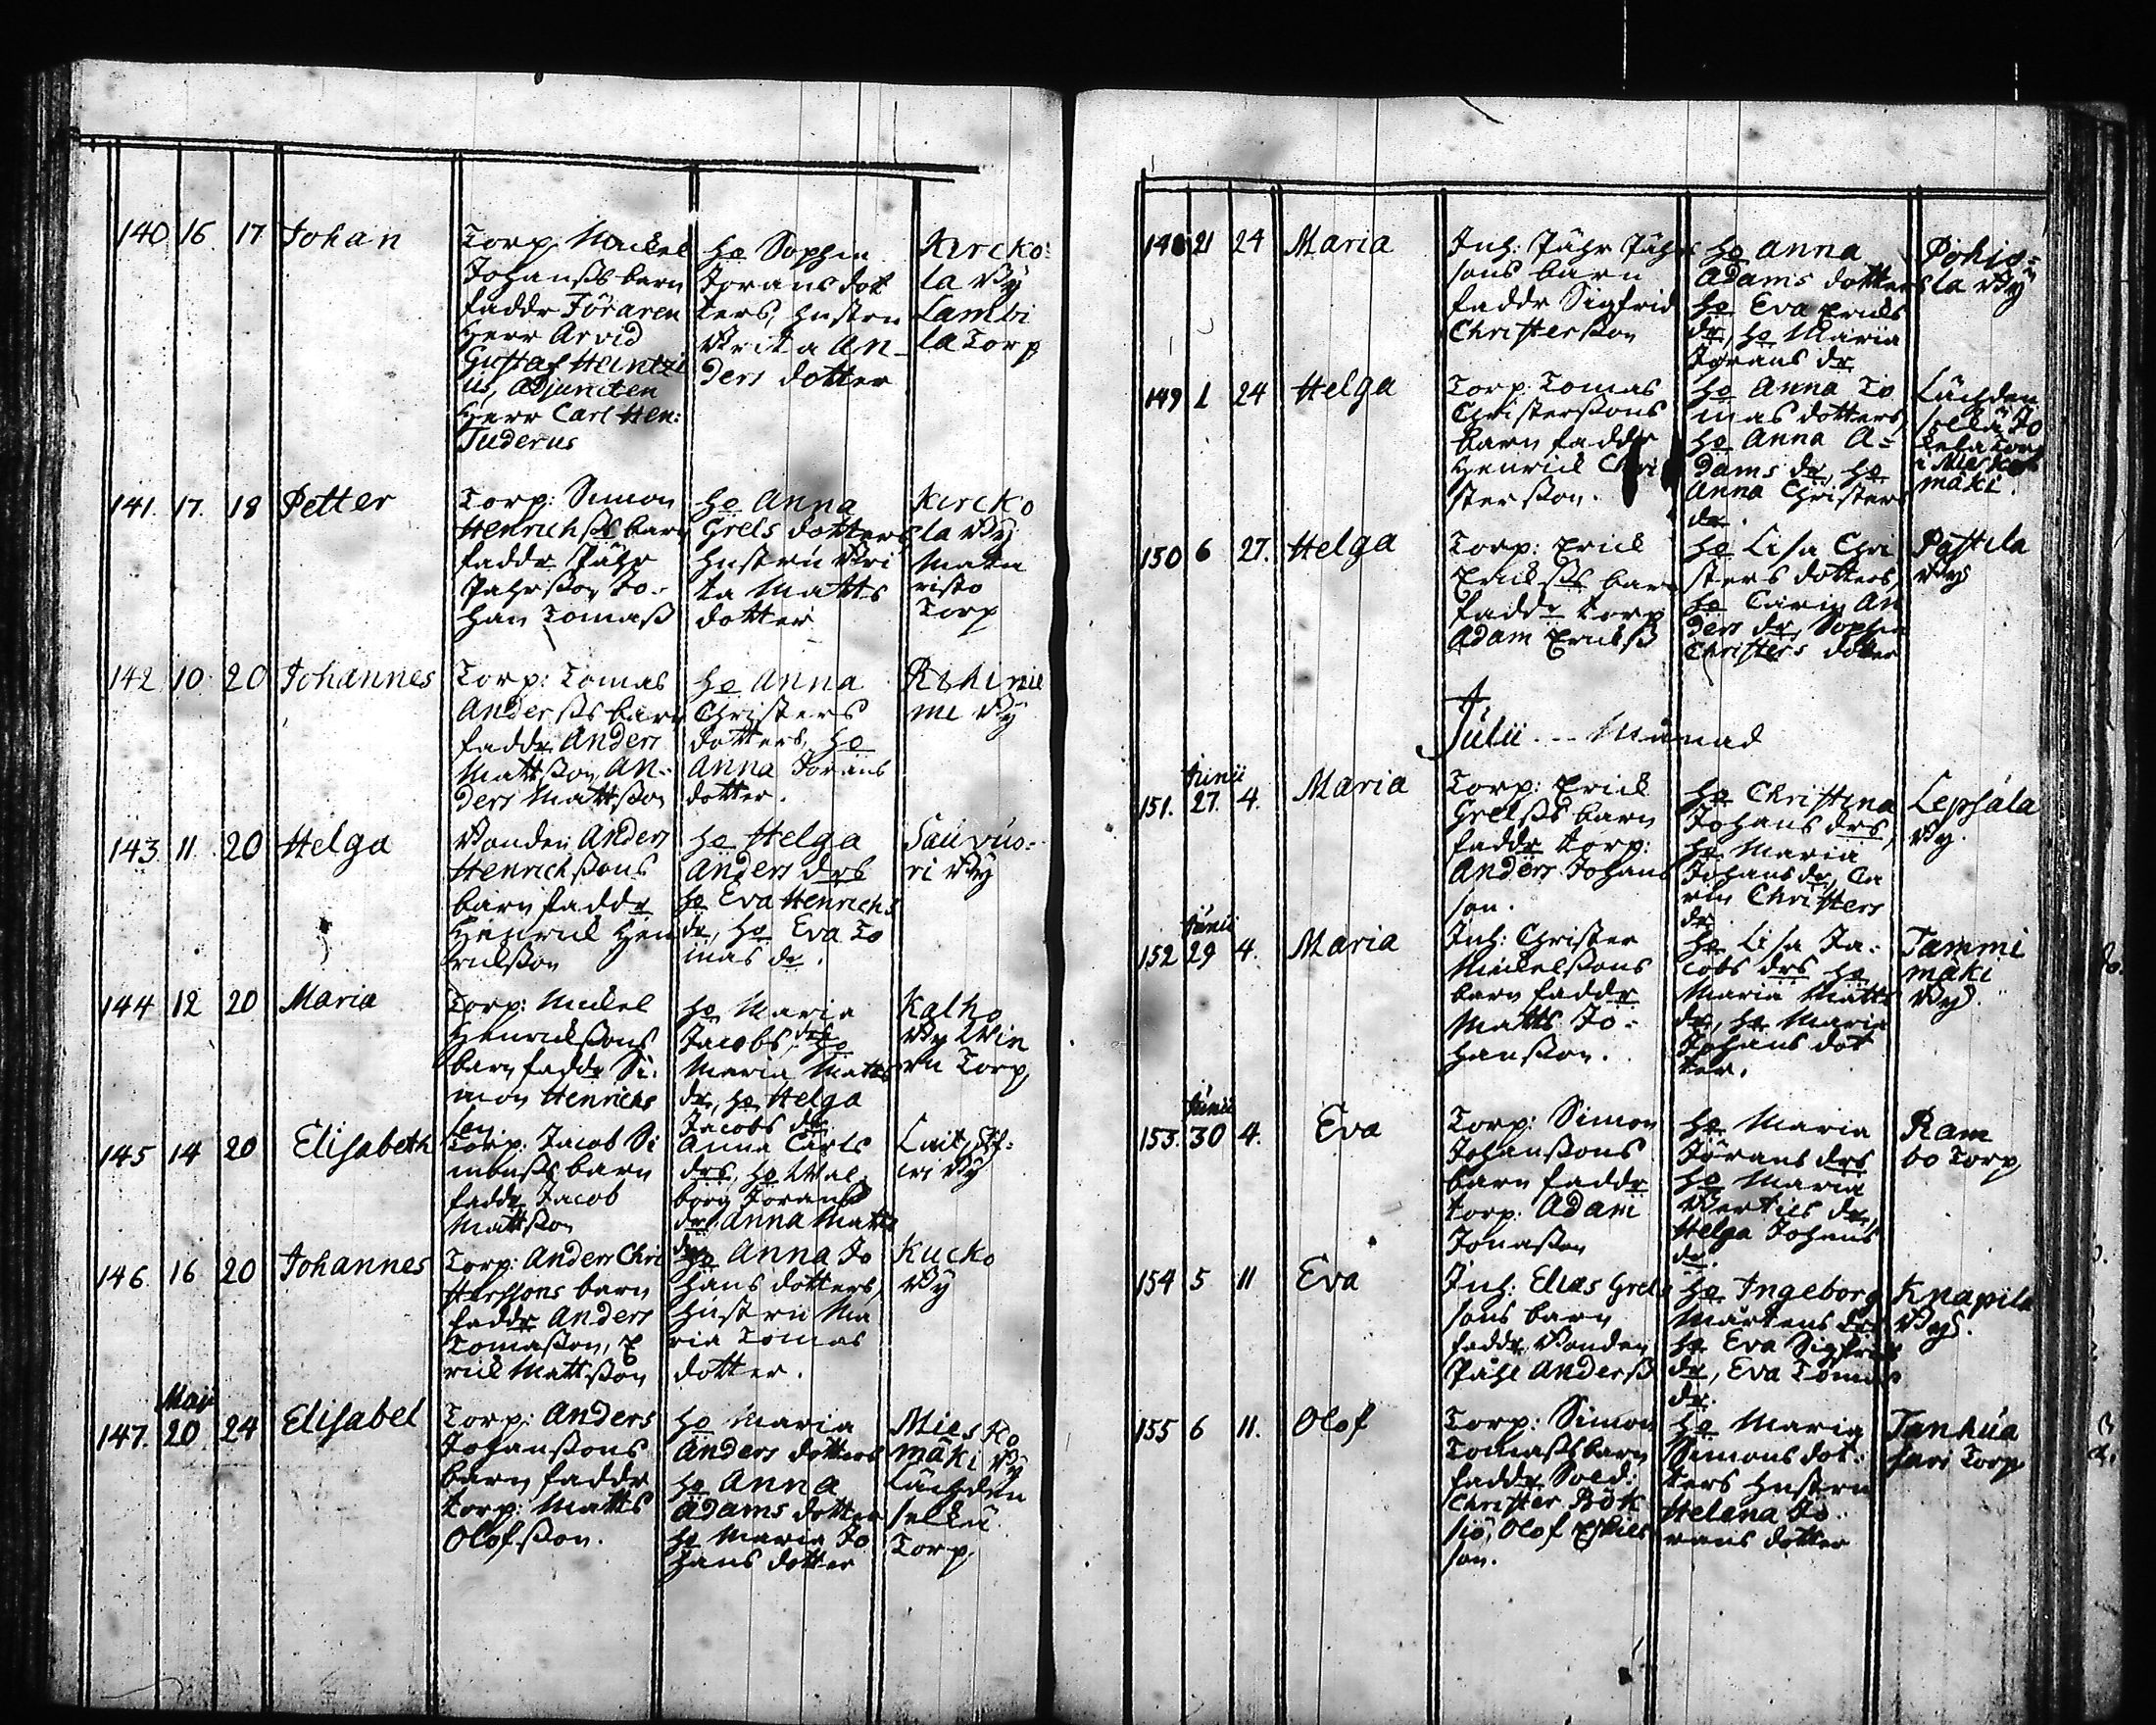 140. 16. 17 Johan
Torp. Mickel
Johanßs barn
faddr Föraren
Herr Arvid
Gustaf Heintzi
us, Adjuncten
Herr Carl Hen:
Tuderus
ho Sophia
Jörans dot
ters, hustru
Brita An-
ders dotter
Kircko:
la By
Lambi
la Torp
141. 17. 18 Petter
Torp: Simon
Henrichßs barn
faddr Påhr
Påhrßon, Jo-
han Tomaß
ho Anna
Grels dotters,
hustru Bri
ta Matts
dotter
Kircko
la By
Matu
risto
Torp
142 10 20 Johannes
Torp: Tomas
Anderßs barn
faddr Anders
Mattßon, An-
ders Mattßon
ho Anna
Christers
dotters, ho
Anna Jörans
dotter.
Rihinie
mi By
143 11 20 Helga
Bonden Anders
Henrichßons
barn faddr
Henrick Hen
rickßon
ho Helga
Anders drs
ho Eva Henrichs
dr, ho Eva To
mas dr.
Sauvus-
ri By
144 12 20 Maria
Torp: Mickel
Henrickßons
barn faddr Si-
mon Henrichs
son.
ho Maria
Jacobs drs, ho
Maria Matts
dr, ho Helga
Jacobs dr.
Kalho
By Win
ru Torp,
145 14 20 Elisabeth
Torp: Jacob Si
monßs barn
faddr Jacob
Mattßon
Anna Carls
drs, ho Wal-
borg Jörans
dr, Anna Matts
dr.
146. 16 20 Johannes
Torp: Anders Chri
sterssons barn
faddr Anders
Tomaßon, E
rick Mattßon
ho Anna Jo
hans dotters,
hustru Ma
ria Tomas
dotter.
Kucko
By
Maij
147. 20. 24 Elisabet
Torp: Anders
Johanßons
barn faddr
torp: Matts
Olofßon.
ho Maria
Anders dotters
ho Anna
Adams dotter
ho Maria Jo
hans dotter
Miesko
mäki By
Lächden
selkä
Torp.
148 21 24 Maria
Inh: Påhr Påhrs
sons barn
faddr Sigfrid
Christerßon
ho Anna
Adams dotters
ho Eva Ericks
dr, ho Maria
Jörans dr
Pohjo-
la By
149 1 24 Helga
Torp: Tomas
Christerßons
barn faddr
Henrick Chri
sterßon.
ho Anna To
mas dotters,
ho Anna A-
dams dr, ho
Anna Christers
dr.
Lächden
selkä
i Miesko
mäki.
150 6 27. Helga
Torp: Erick
Erickßs barn
faddr torp
Adam Erickß
ho Lisa Chri
sters dotters,
ho Carin An
ders dr, Sophia
Christers dotter
Påstila
By
Julii -- Månad
Junii
151. 27. 4. Maria
Torp: Erick
Grelßs barn
faddr torp:
Anders Johans
son.
ho Christina
Johans drs,
ho Maria
Johans dr, Ca
rin Christers
dr.
Lepsála
By.
Junii
152 29 4. Maria
Inh: Christer
Mickelßons
barn faddr
Matts Jo-
hanßon.
ho Lisa Ja-
cobs drs, ho
Maria Matts
dr, ho Maria
Johans dot
ter.
Tammi
mäki
By.
Junii
153. 30 4. Eva
Torp: Simon
Johanßons
barn faddr
torp: Adam
Jonaßon
ho Maria
Jörans drs
ho Maria
Bertils dr,
Helga Johans
dr.
Ram
bo Torp,
154 5 11 Eva
Inh: Elias Grels
sons barn
faddr, Bonden
Påhl Anderß
ho Ingeborg
Mårtens drs
ho Eva Sigfrids
dr, Eva Tomas
dr.
Knapila
By.
155 6 11. Olof
Torp: Simon
Tomaßs barn
faddr Sold:
Christer Rök
siö, Olof Eskils
son.
ho Maria
Simons dot:
ters hustru
Helena Jö-
rans dotter
Tanhua
sari Torp